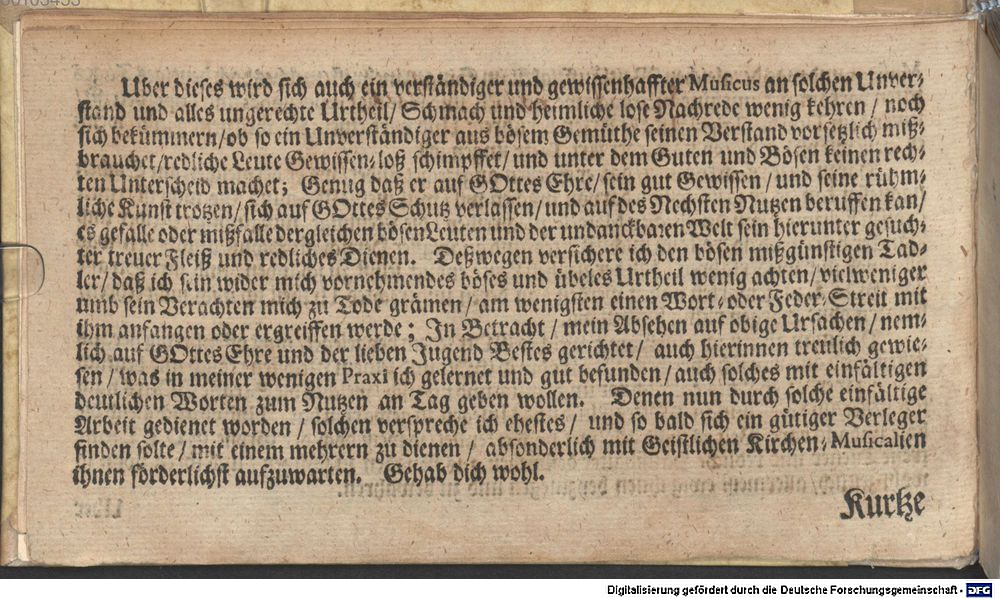 Uber dieses wird sich auch ein verständiger und gewissenhaffter Musicus an solchen Unver-
stand und alles ungerechte Urtheil/ Schmach und heimliche lose Nachrede wenig kehren / noch
sich bekümmern/ ob so ein Unverständiger aus bösem Gemüthe seinen Verstand vorsetzlich miß-
brauchet/ redliche Leute Gewissen-loß schimpffet/ und unter dem Guten und Bösen keinen rech-
ten Unterscheid machet; Genug daß er auf GOttes Ehre/ sein gut Gewissen / und seine rühm-
liche Kunst trotzen/ sich auf GOttes Schutz verlassen/ und auf des Nechsten Nutzen beruffen kan/
es gefalle oder mißfalle dergleichen bösen Leuten und der undanckbaren Welt sein hierunter gesuch-
ter treuer Fleiß und redliches Dienen. Deßwegen versichere ich den bösen mißgünstigen Tad-
ler/ daß ich sein wider mich vornehmendes böses und übeles Urtheil wenig achten/ vielweniger
umb sein Verachten mich zu Tode grämen/ am wenigsten einen Wort- oder Feder-Streit mit
ihm anfangen oder ergreiffen werde; In Betracht / mein Absehen auf obige Ursachen / nem-
lich auf GOttes Ehre und der lieben Jugend Bestes gerichtet/ auch hierinnen treulich gewie-
sen / was in meiner wenigen Praxi ich gelernet und gut befunden / auch solches mit einfältigen
deutlichen Worten zum Nutzen an Tag geben wollen. Denen nun durch solche einfältige
Arbeit gedienet worden / solchen verspreche ich ehestes/ und so bald sich ein gütiger Verleger
finden solte/ mit einem mehrern zu dienen / absonderlich mit Geistlichen Kirchen-Musicalien
ihnen förderlichst aufzuwarten. Gehab dich wohl.
Kurtze
Digitalisierung gefördert durch die Deutsche Forschungsgemeinschaft - DFG